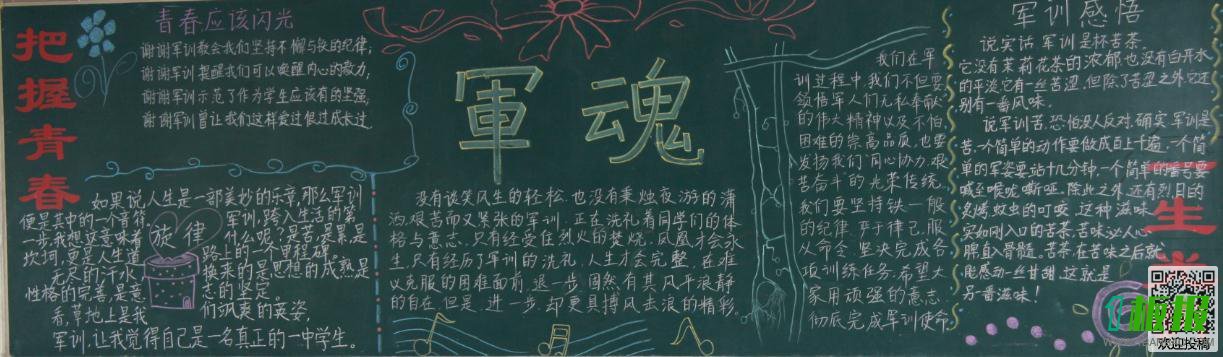 把握青春
青春应该闪光
谢谢军训教会我们坚持不懈与铁的纪律;
谢谢军训提醒我们可以唤醒内心的毅力;
谢谢军训示范了作为学生应该有的坚强;
谢谢军训曾让我们这样爱过恨过成长过.
如果说,人生是一部美妙的乐章,那么军训
便是其中的一个音符.
军训,跨入生活的第
一步,我想这意味着
什么呢?是苦,是累,是
坎坷,更是人生道
路上的一个里程碑.
无尽的汗水
换来的是思想的成熟,是
性格的完善,是意
志的坚定.
系,草地上是我
们飒爽的英姿,
军训,让我觉得自己是一名真正的一中学生.
旋律
軍魂
没有谈笑风生的轻松,也没有秉烛夜游的潇
洒,艰苦而又紧张的军训,正在洗礼着同学们的体
格与意志.只有经受住烈火的焚烧,凤凰才会永
生,只有经历了军训的洗礼,人生才会完整.在难
以克服的困难面前,退一步,固然有其风平浪静
的自在,但是,进一步,却更具搏风击浪的精彩.
我们在军
训过程中,我们不但要
领悟军人们无私奉献
的伟大精神以及不怕
困难的崇高品质,也要
发扬我们"同心协力,艰
苦奋斗"的光荣传统.
我们要坚持铁一般
的纪律,严于律己,服
从命令,坚决完成各
项训练任务.希望大
家用顽强的意志,
彻底完成军训使命.
军训感悟
说实话,军训是杯苦茶.
它没有茉莉花茶的浓郁,也没有白开水
的平淡,它有一丝苦涩,但除了苦涩之外,它还
别有一番风味.
说军训苦,恐怕没人反对,确实,军训是
苦,一个简单的动作要做成百上千遍,一个简
单的军姿要站十几分钟,一个简单的番号要
喊至喉咙嘶哑,除此之外,还有烈日的
炙烤,蚊虫的叮咬,这种滋味
实如刚入口的苦茶,苦味沁人心
脾,直入骨髓,苦茶在苦味之后就
能感动一丝甘甜,这就是
另一番滋味!
一生
1板报
欢迎投稿